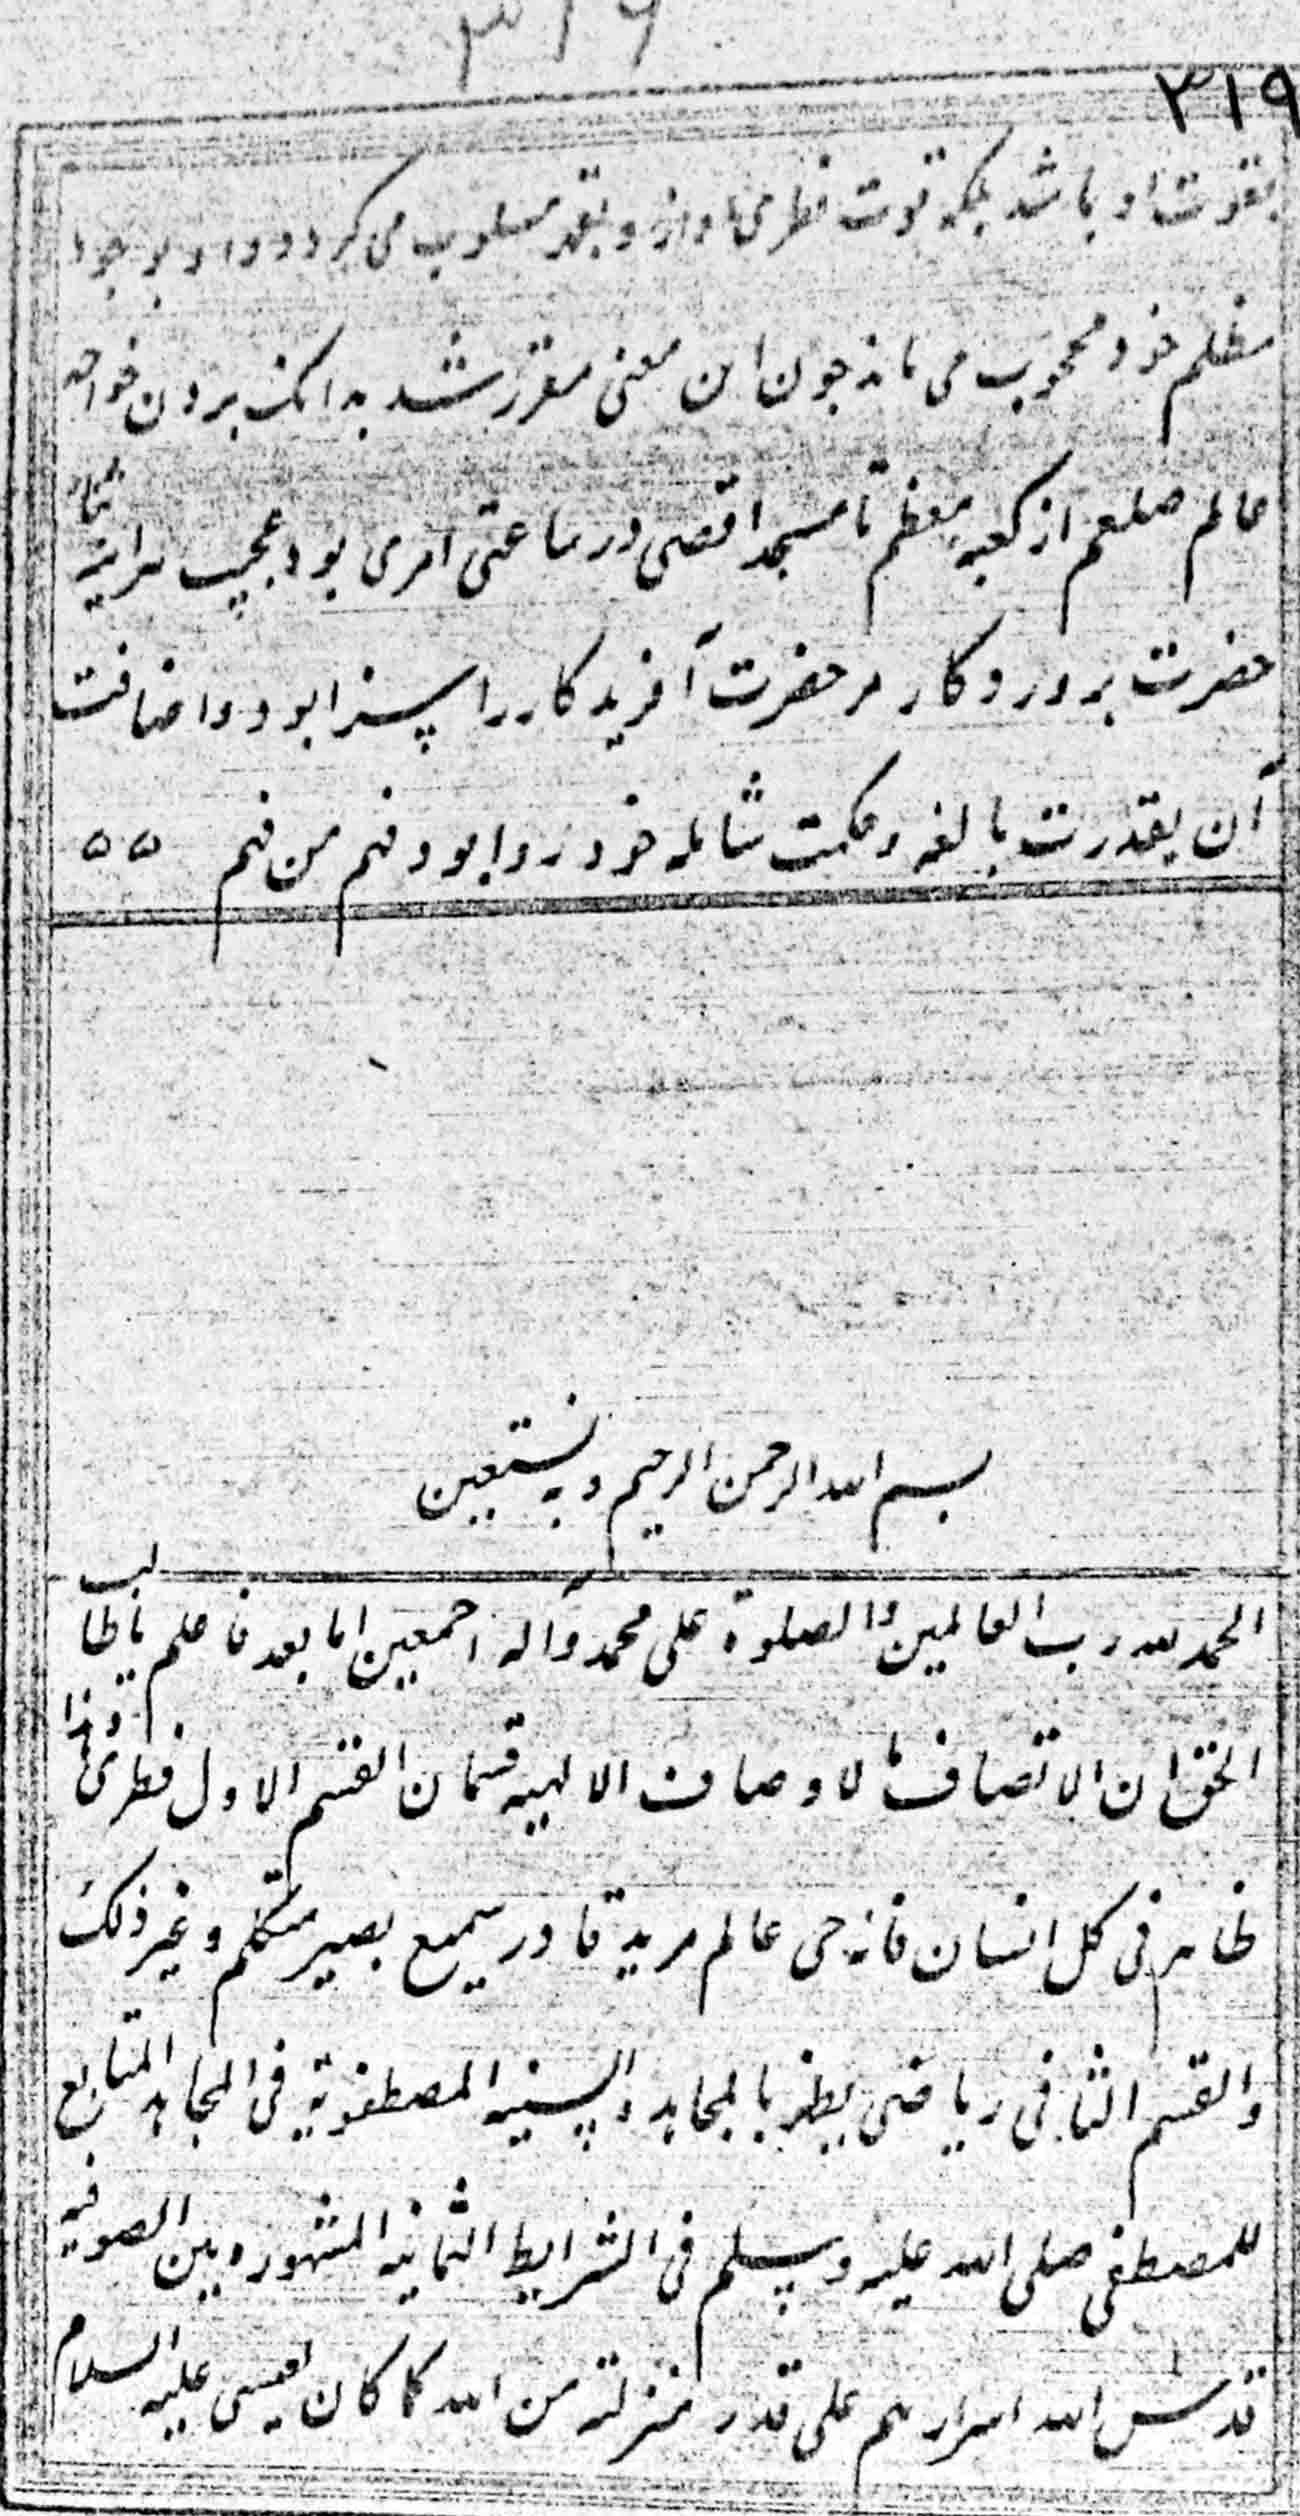 ۳۱۹
۳۱۹
بقوت او باشد بلکه قوت نظر می و از و بقهر مسلوب می گردد و او بوجود
مظلم خود محجوب می ماند چون این معنی مقرر شد بدانک بردن خواجه
عالم صلعم از کعبه معظم تا مسجد اقصی در ساعتی امری بود عجیب هراینه
حضرت پروردگار مر حضرت آفریدکار را سزا بود و اضافت
آن بقدرت بالغه و حکمت شامله خود روا بود فهم من فهم ۵۵
بسم الله الرحمن الرحیم و به نستعین
الحمد لله رب العالمین و الصلوة علی محمد و آله اجمعین اما بعد فاعلم یا طالب
الحق ان الاتصاف بالاوصاف الالهیه قسمان القسم الاول فطری و هذا
ظاهر فی کل انسان فانه حی عالم مرید قادر سمیع بصیر متکلم و غیر ذلک
والقسم الثانی ریاضی یظهر بالمجاهده السنیه المصطفویة فی المجاهد المتابع
للمصطفی صلی الله علیه وسلم فی الشرایط الثمانیه المشهوره بین الصوفیه
قدس الله اسرارهم علی قدر منزلته من الله کما کان لعیسی علیه السلام